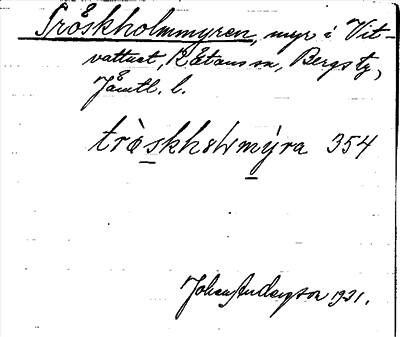 Tröskholmmyren, myr i Vit-
vattnet, Rätans sn, Bergs tg,
Jämtl. l.
trὲskhɷlmýra 354
Johan Anderson 1931.